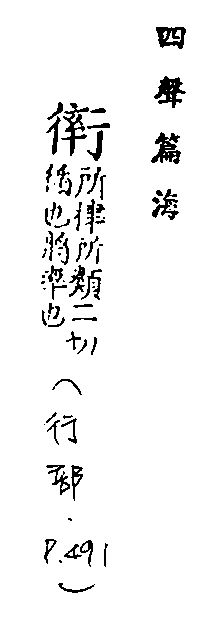 四聲篇海
所律所類二切
循也將率也
(行部．P.491)